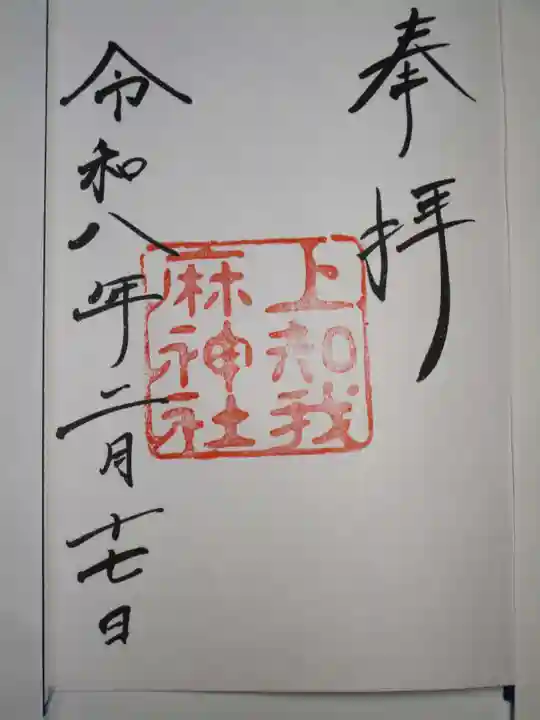 奉拝
上知我
麻神社
令和八年二月十七日